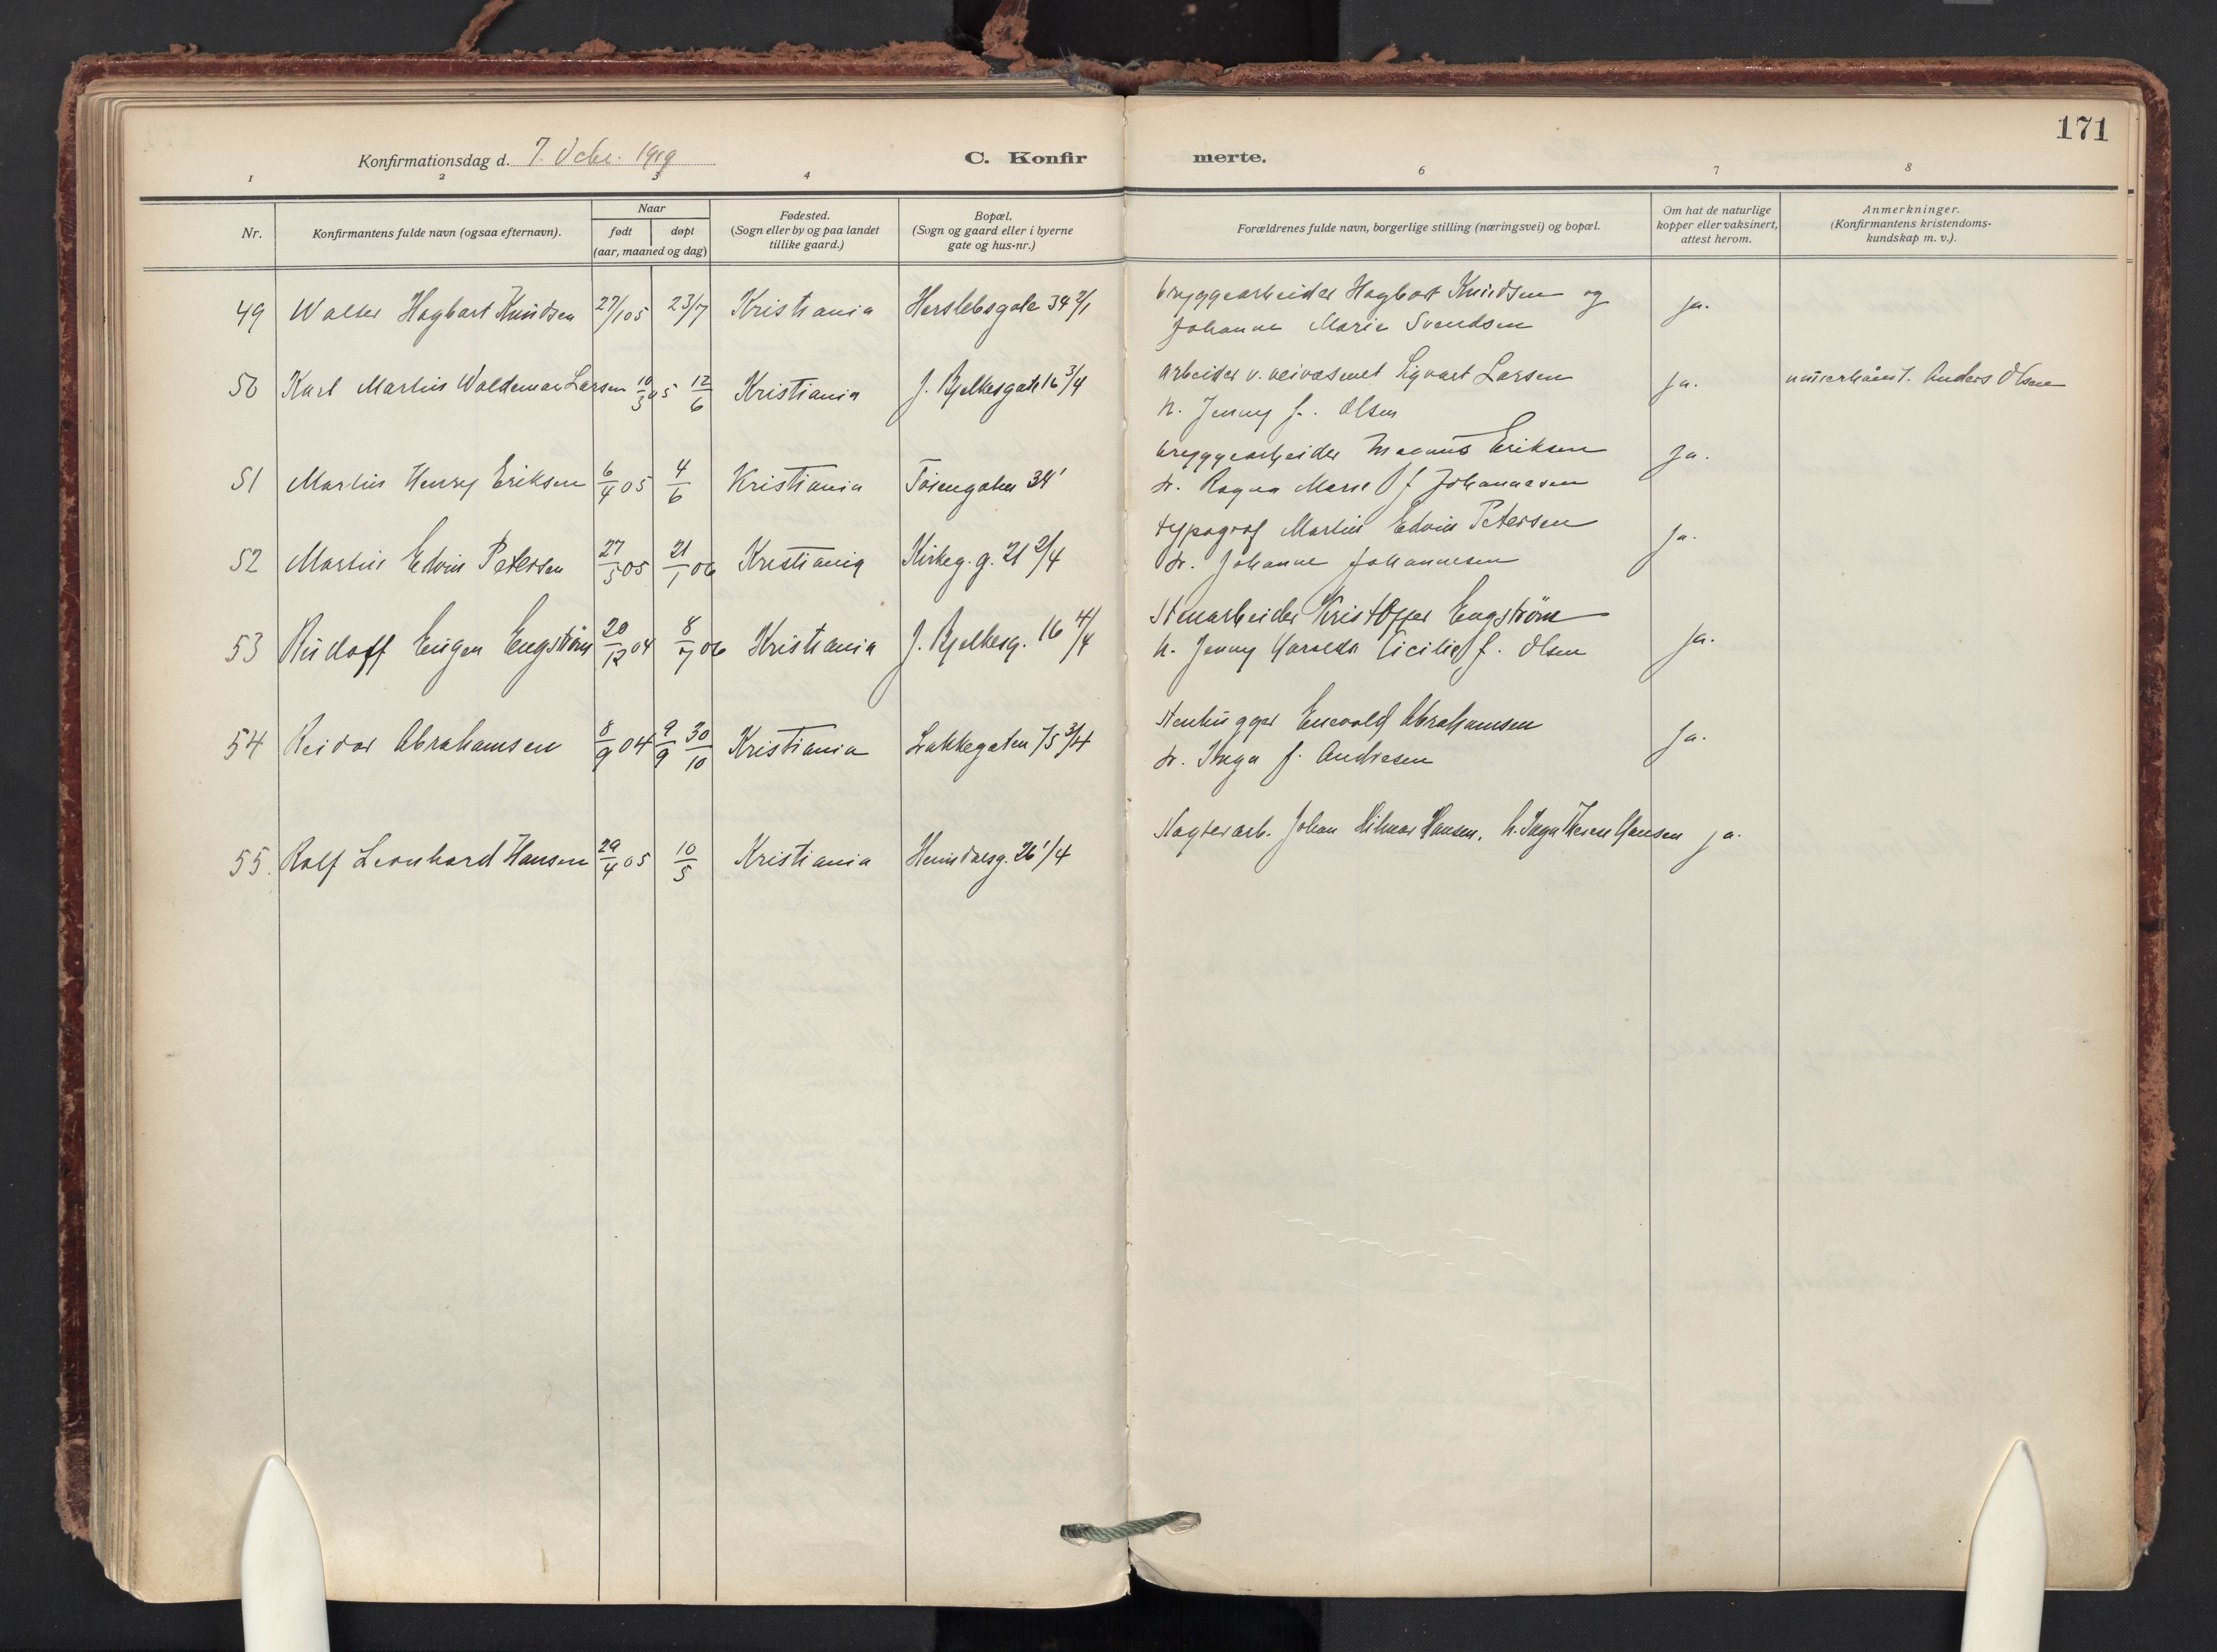 171
Konfirmationsdag d. 7. Octbr. 1919
C. Konfirmerte.
1 2 3 4 6 7 8
Nr.
Konfirmantens fulde navn (ogsaa efternavn).
Naar
født døpt
(aar, maaned og dag)
Fødested.
(Sogn eller by og paa landet
tillike gaard.)
Bopæl.
(Sogn og gaard eller i byerne
gate og hus-nr.)
Forældrenes fulde navn, borgerlige stilling (næringsvei) og bopæl.
Om hat de naturlige
kopper eller vaksinert,
attest herom.
Anmerkninger.
(Konfirmantens kristendoms-
kundskap m. v.).
49 Walter Hagbart Knudsen 27/1 05 23/7 Kristiania Herslebsgate 34 2/1 bryggearbeider Hagbart Knudsen og
Johanne Marie Svendsen ja.
50 Karl Martin Waldemar Larsen 10/3 05 12/6 Kristiania J. Bjelkesgate 16 3/4 arbeider v. veivæsenet Sigvart Larsen
h. Jenny f. Olsen ja. Anders Olsen
51 Martin Henry Eriksen 6/4 05 4/6 Kristiania Tøiengaten 34' bryggearbeider Magnus Eriksen
h. Ragna Marie f Johannesen ja.
52 Martin Edvin Petersen 27/5 05 21/1 06 Kristiania Kirkeg. g. 21 2/4 typograf Martin Edvin Petersen
h. Johanne Johannesen ja.
53 Rudolf Eugen Engstrøm 20/12 04 8/7 06 Kristiania J. Bjelkesg. 16 4/4 Stenarbeider Kristoffer Engström
h. Jenny Haralda Cicilie f. Olsen ja.
54 Reidar Abrahamsen 8/9 04 9/9 30/10 Kristiania Lakkegaten 75 3/4 Stenhugger Enevold Abrahamsen
h. Inga f. Andresen ja.
55. Rolf Leonhard Hansen 29/4 05 10/5 Kristiania Heimdalsg. 26 1/4 Slagterarb. Johan Hilmar Hansen, h. Inga Therese Hansen ja.